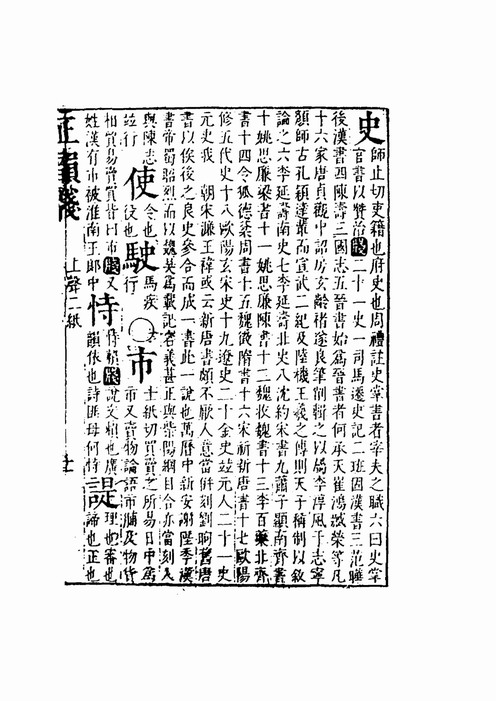 史師止切吏籍也府史也周禮註史掌書者宰夫之職六曰史掌
官書以贊治牋二十一史一司馬遷史記二班固漢書三范曄
後漢書四陳壽三國志五晉書始爲晉書者何承天崔鴻臧榮等凡
十六家唐貞觀中詔房玄齡褚遂良筆削輯之以屬李淳風于志寧
顏師古孔穎達叢而宣武二紀及陸機王羲之傳則天子稱制以敘
論之六李延壽南史七李延壽北史八沈約宋書九蕭子顯南齊書
十姚思廉梁書十一姚思廉陳書十二魏收魏書十三李百藥北齊
書十四令狐德棻周書十五魏徵隋書十六宋祁新唐書十七歐陽
修五代史十八歐陽玄宋史十九遼史二十金史竝元人二十一史
元史我 朝宋濂王禕或云新唐書頗不厭人意當併刻劉昫舊唐
書以俟後之良史參合而成一書此一說也萬曆中新安謝陛季漢
書帝蜀昭烈而以魏吳爲載記名義甚正與紫陽綱目合亦當刻入
與陳志竝行使令也役也駛馬疾行○市士紙切買賣之所易日中爲市又賣物論語市脯及物貨
相貿易買賣皆曰市牋又姓漢有市被淮南王郎中恃恃賴牋說文賴也廣韻依也詩無母何恃諟理也審也諦也正也
正韻牋
上聲二紙